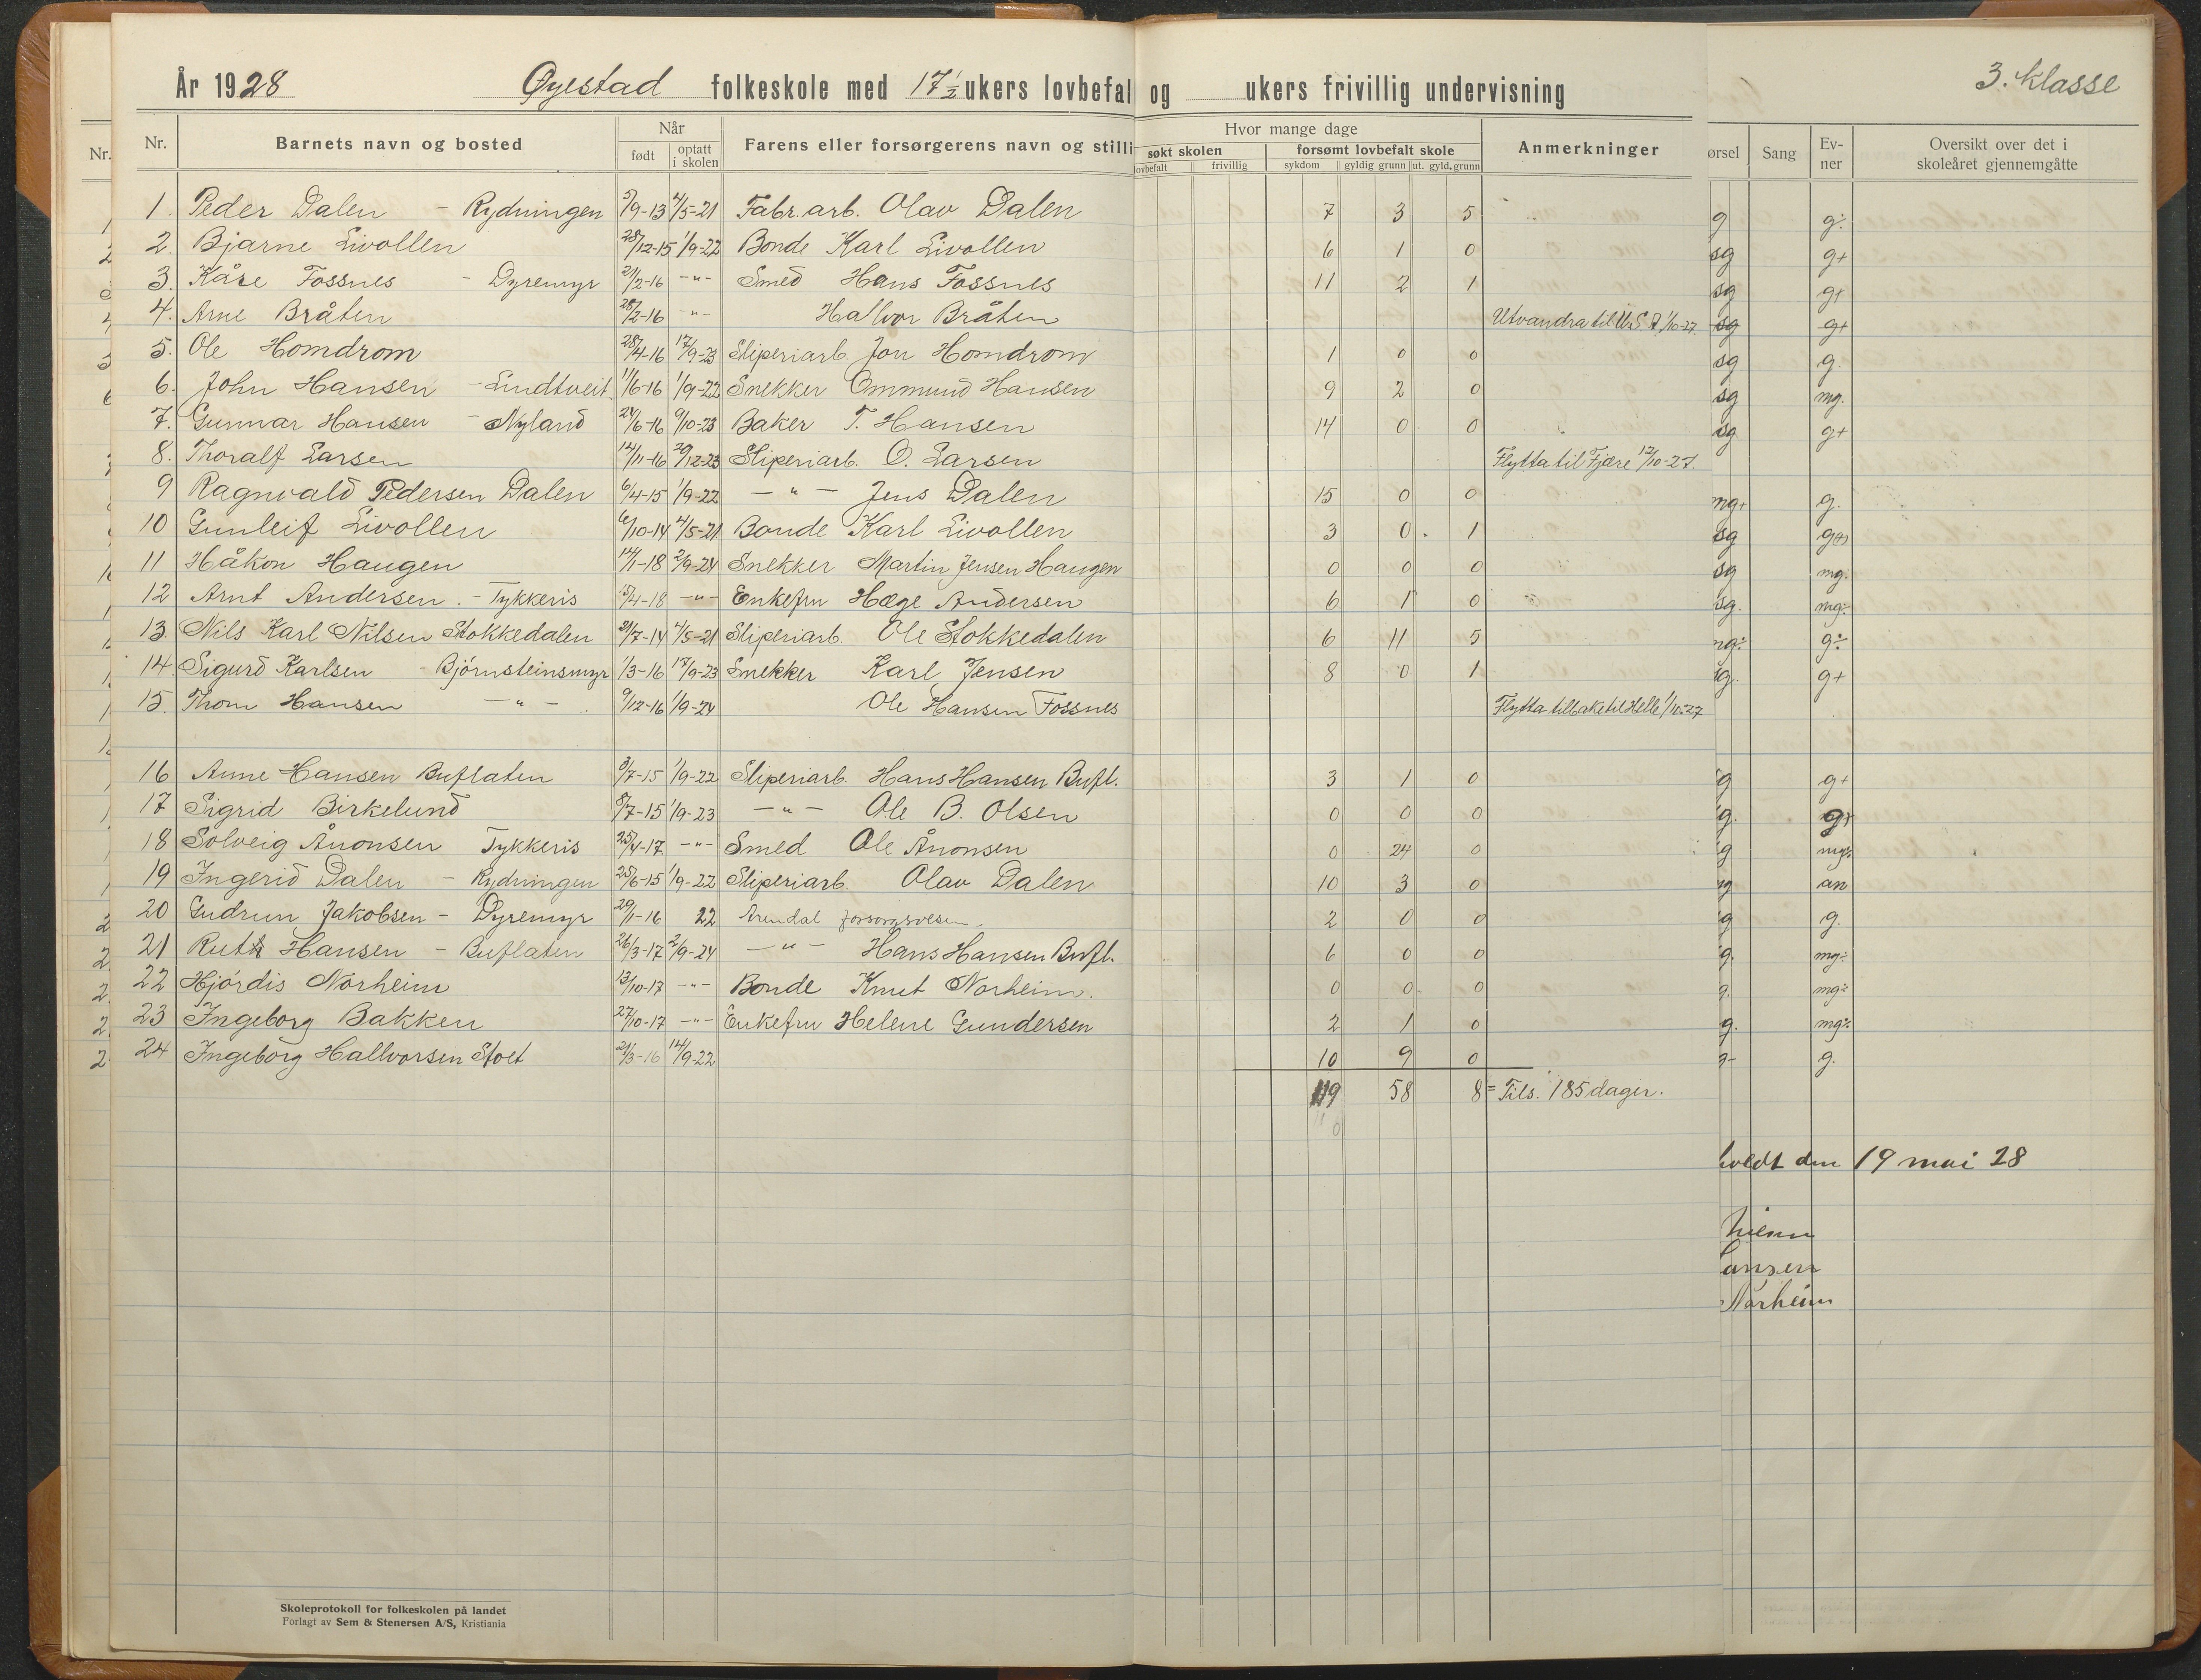 År 1928 Øyestad folkeskole med 17 ½ ukers lovbefal og ukers frivillig undervisning
3. klasse
Nr. Nr. Barnets navn og bosted Når født optatt i skolen Farens eller forsørgerens navn og stilli Hvor mange dage søkt skolen lovbefalt frivillig forsømt lovbefalt skole sykdom gyldig grunn ut. gyld. grunn Anmerkninger ørsel Sang Ev-ner Oversikt over det i skoleåret gjennemgåtte
1. Peder Dalen - Rydningen 5/9-13 4/5-21 Fabr. arb. Olav Dalen 7 3 5 g g÷
2. Bjarne Livollen 28/12-15 1/9-22 Bonde Karl Livollen 6 1 0 sg g+
3. Kåre Fossnes - Dyremyr 21/2-16 -"- Smed Hans Fossnes 11 2 1 sg g+
4. Arne Bråten 28/2-16 -"- Hallvor Bråten Utvandra til U.S.A. 1/10-27. sg g+
5. Ole Homdrom 28/4-16 17/9-23 Sliperiarb. Jon Homdrom 1 0 0 sg g.
6. John Hansen - Lindtveit 11/6-16 1/9-22 Snekker Ommund Hansen 9 2 0 sg mg.
7. Gunnar Hansen - Nyland 24/6-16 9/10-23 Baker T. Hansen 14 0 0 sg g+
8. Thoralf Larsen 12/11-16 20/12-23 Sliperiarb. O. Larsen Flytta til Fjære 12/10-27.
9 Ragnvald Pedersen Dalen 6/4-15 1/9-22 -"- Jens Dalen 15 0 0 mg+ g.
10 Gunleif Livollen 6/10-14 4/5-21 Bonde Karl Livollen 3 0 1 sg
11 Håkon Haugen 14/1-18 2/9-24 Snekker Martin Jensen Haugen 0 0 0 sg mg.
12 Arnt Andersen. - Tykkeris 15/4-18 -"- Enkefru Hæge Andersen 6 1 0 sg. mg÷
13. Nils Karl Nilsen Stokkedalen 21/7-14 4/5-21 Sliperiarb. Ole Stokkedalen 6 11 5 mg÷ g÷
14. Sigurd Karlsen - Bjørnsteinsmyr 1/3-16 17/9-23 Snekker Karl Jensen 8 0 1 g. g+
15. Thom Hansen -"- 9/12-16 1/9-24 Ole Hansen Fossnes Flytta tilbake til Helle 1/10-27
16 Anne Hansen Buflaten 3/7-15 1/9-22 Sliperiarb. Hans Hansen Bufl. 3 1 0 g g+
17 Sigrid Birkelund 8/7-15 1/9-23 -"- Ole B. Olsen 0 0 0 g. g+
18 Solveig Ånonsen Tykkeris 25/4-17 -"- Smed Ole Ånonsen 0 24 0 g mg÷
19 Ingerid Dalen - Rydningen 25/6-15 1/9-22 Sliperiarb. Olav Dalen 10 3 0 g an
20 Gudrun Jakobsen - Dyremyr 29/1-16 22 Arendal forsorgsvesen. 2 0 0 g g.
21 Ruth Hansen - Buflaten 26/3-17 2/9-24 -"- Hans Hansen Bufl. 6 0 0 g. mg÷
22 Hjørdis Norheim 13/10-17 -"- Bonde Knut Norheim. 0 0 0 g. mg÷
23 Ingeborg Bakken 27/10-17 -"- Enkefru Helene Gundersen 2 1 0 g. mg÷
24 Ingeborg Hallvorsen Stolt 21/3-16 14/9-22 10 9 0 g.
119 58 8 = Tils. 185 dager.
holdt den 19 mai 28
ansen
Norheim
Skoleprotokoll for folkeskolen på landet
Forlagt av Sem & Stenersen A/S, Kristiania